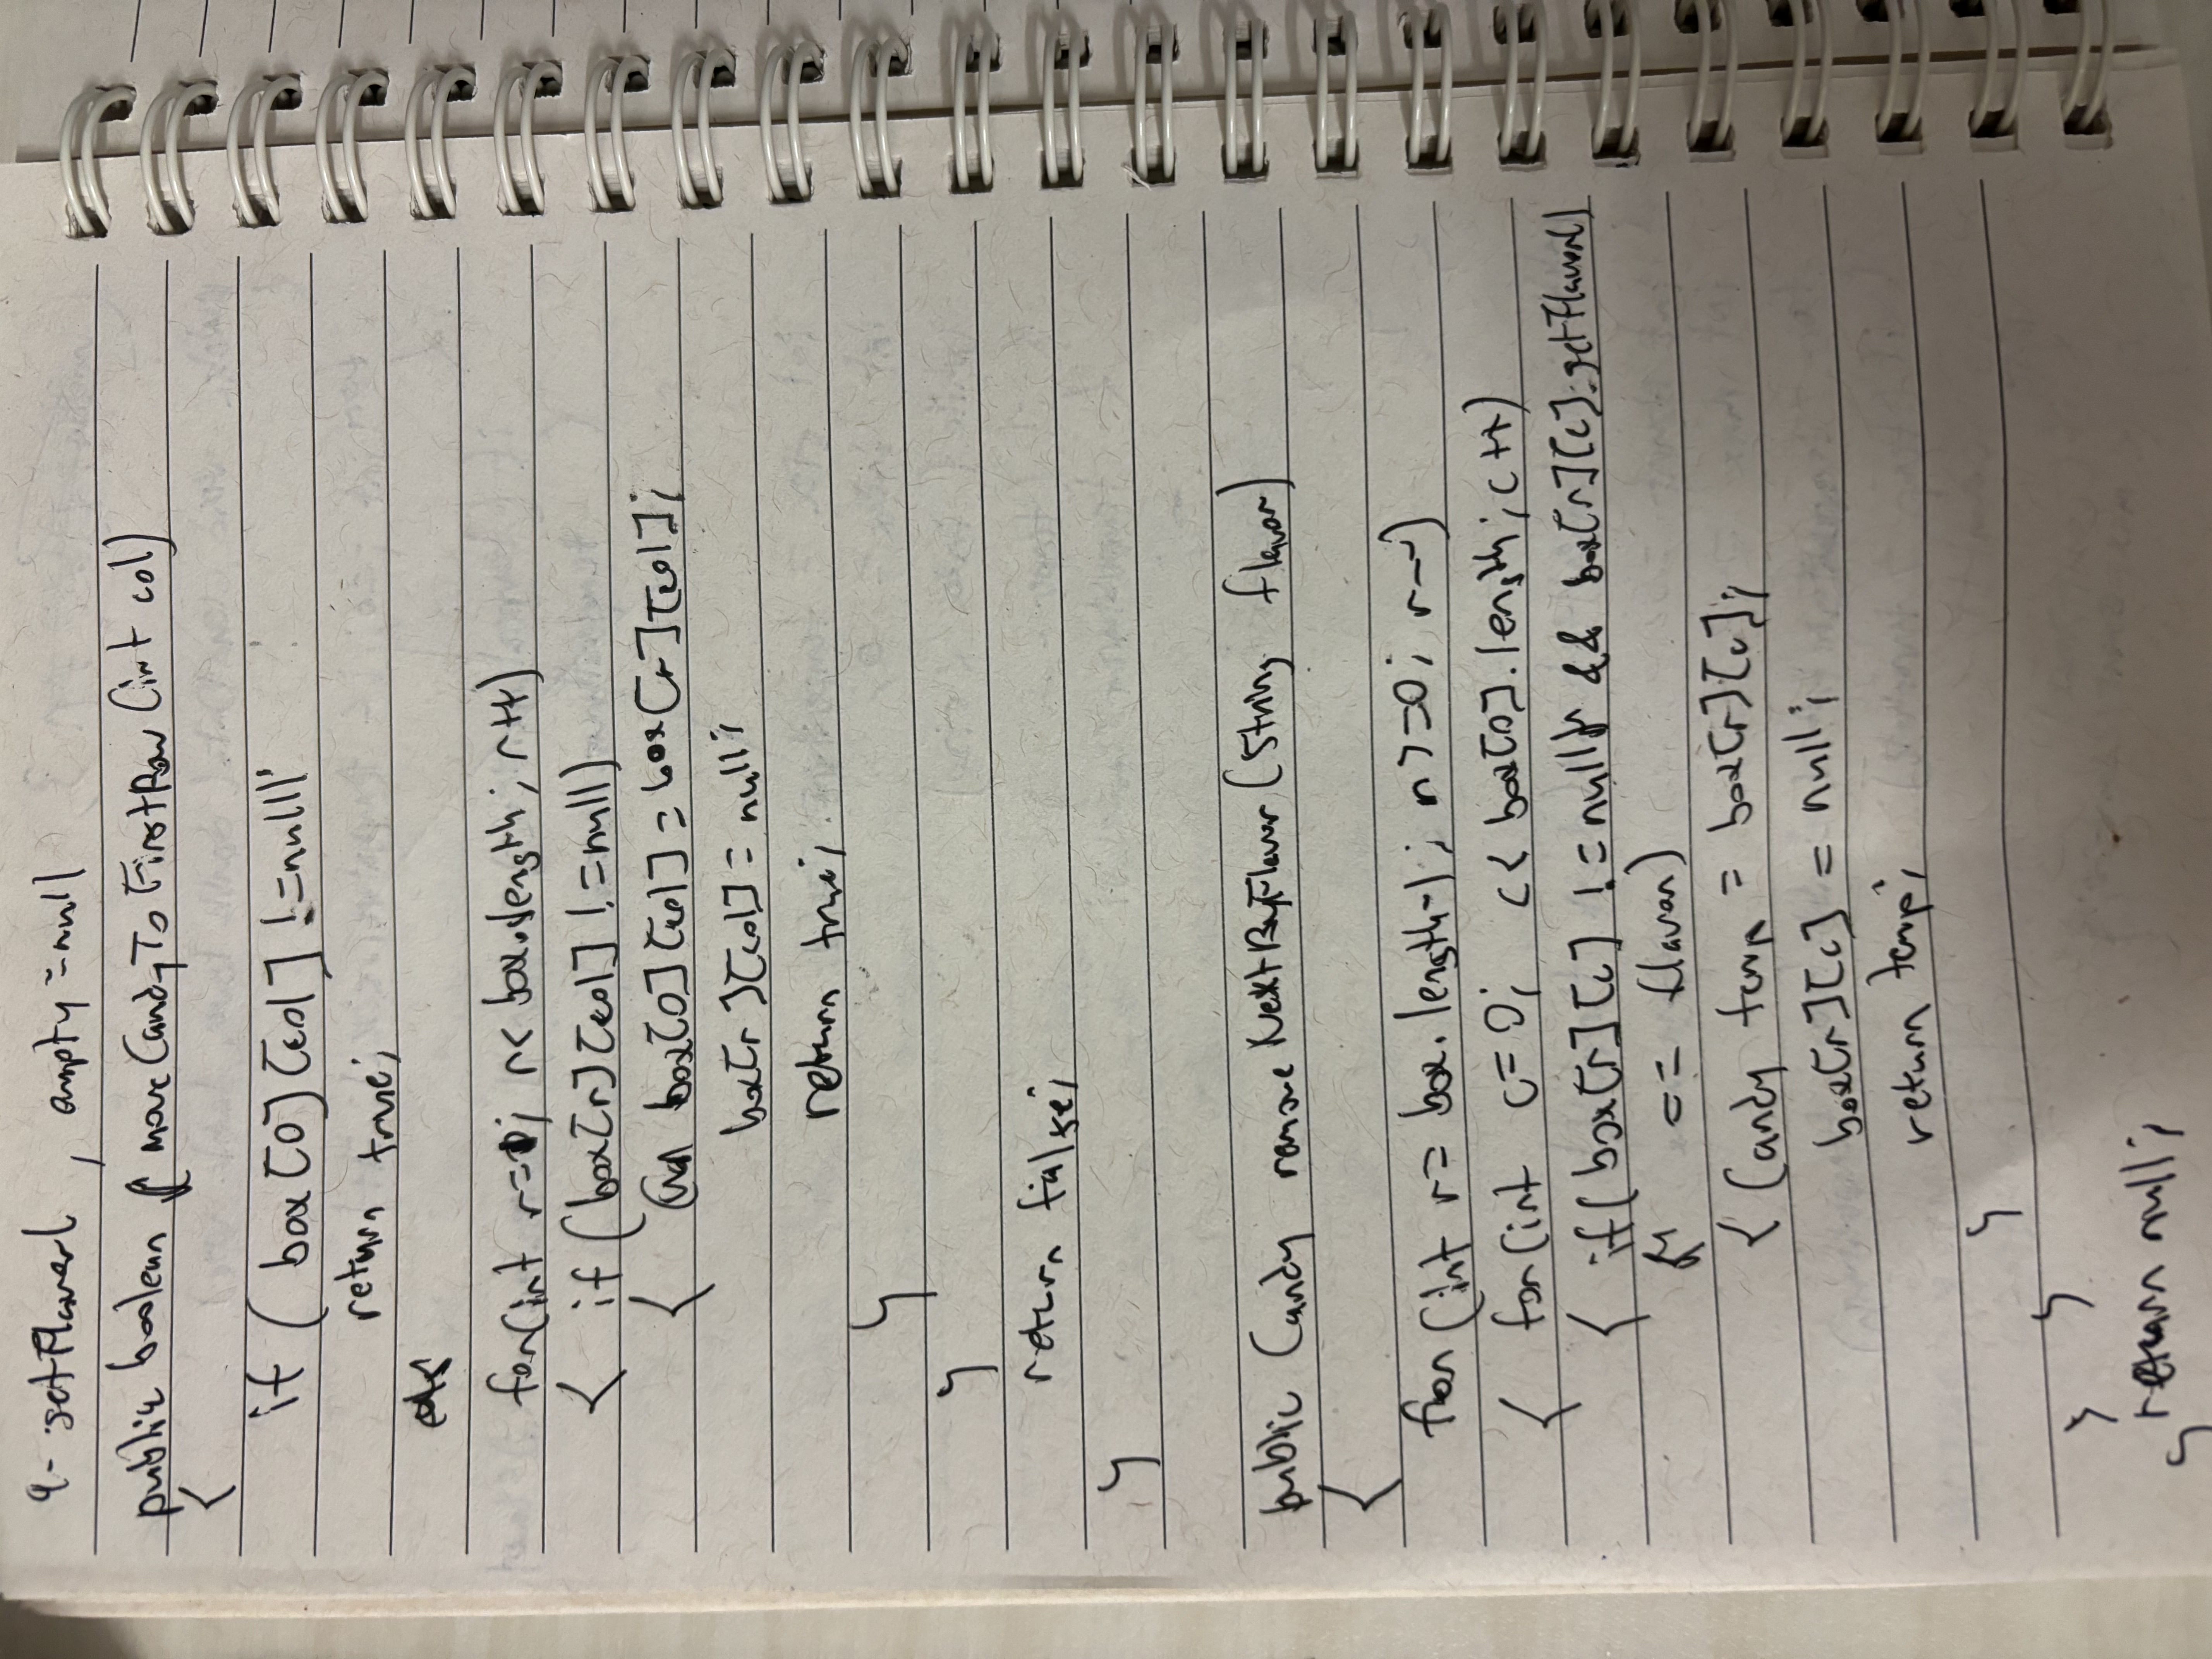 4- getFlavor() , empty = null
public boolean moveCandyToFirstRow (int col)
{
if ( box[0][col] != null)
return true;
for(int r=1; r< box.length; r++)
{ if (box[r][col] != null)
{ box[0][col] = box[r][col];
box[r][col] = null;
return true;
}
}
return false;
}
public Candy removeNextByFlavor (String flavor)
{
for (int r= box.length-1; r>=0; r--)
{ for(int c=0; c< box[0].length; c++)
{ if( box[r][c] != null && box[r][c].getFlavor()
== flavor)
{ Candy temp = box[r][c];
box[r][c] = null;
return temp;
}
}
}
return null;
}